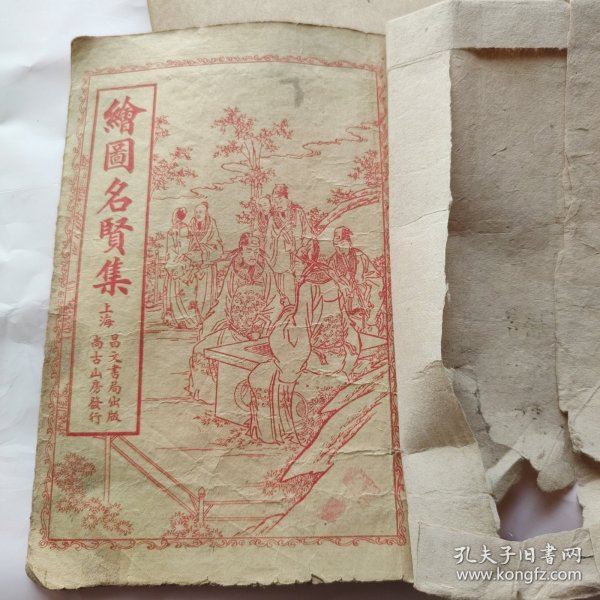 繪圖名賢集
上海
昌文書局出版
尚古山房發行
孔夫子旧书网
www.kongfz.com